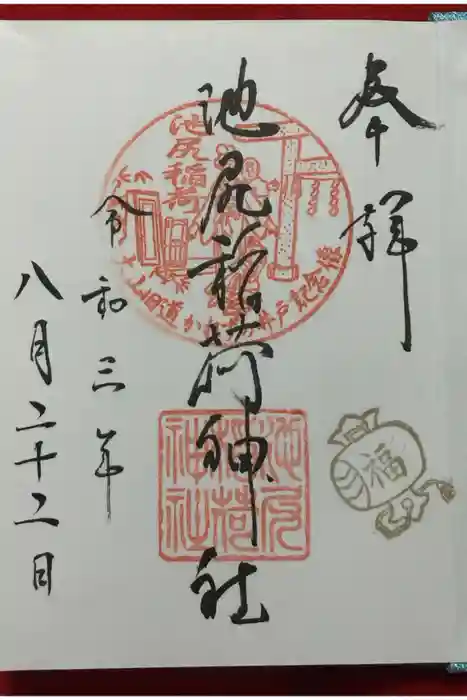 奉拝
池尻稲荷神社
令和三年
八月二十二日
池尻稲荷
旧道
井戸記念
池尻稲荷神社
福